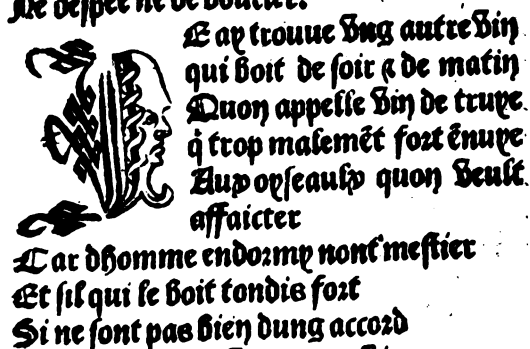 deſpee ne de bouclier.
IE ay trouue vng autre vin
qui boit de ſoir & de matin
Quon appelle vin de truye.
q̃ trop malemẽt fort ẽnuye
Aux oyſeaulx quon veult
affaicter
Car dhomme endormy nont meſtier
Et ſil qui le boit tondis fort
Si ne ſont pas bien dung accord